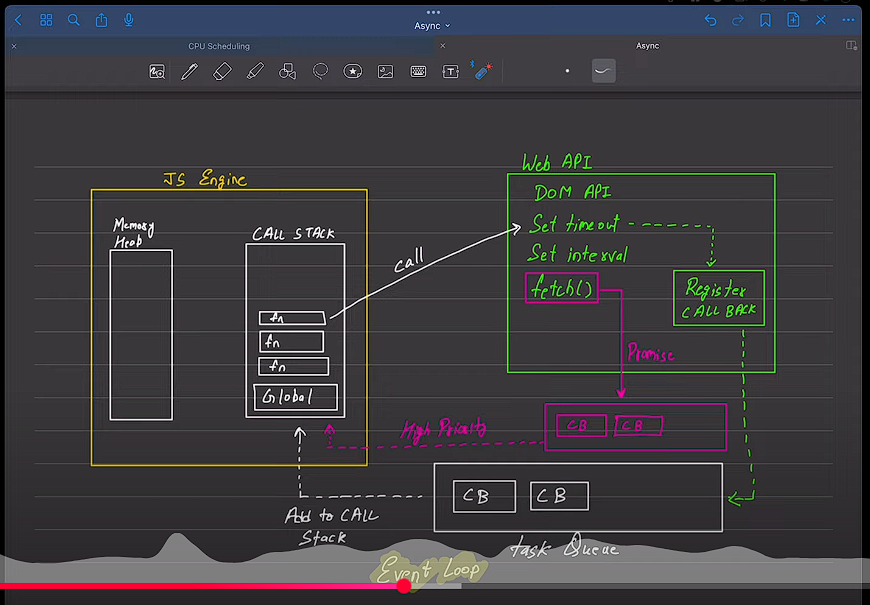 Async
CPU Scheduling
Async
T
JS Engine
Memory
Heab
CALL STACK
fn
fn
fn
Global
call
Web API
DOM API
Set timeout
Set interval
fetch()
Register
CALL BACK
Promise
High Priority
CB
CB
CB
CB
Add to CALL
Stack
task Queue
Event Loop